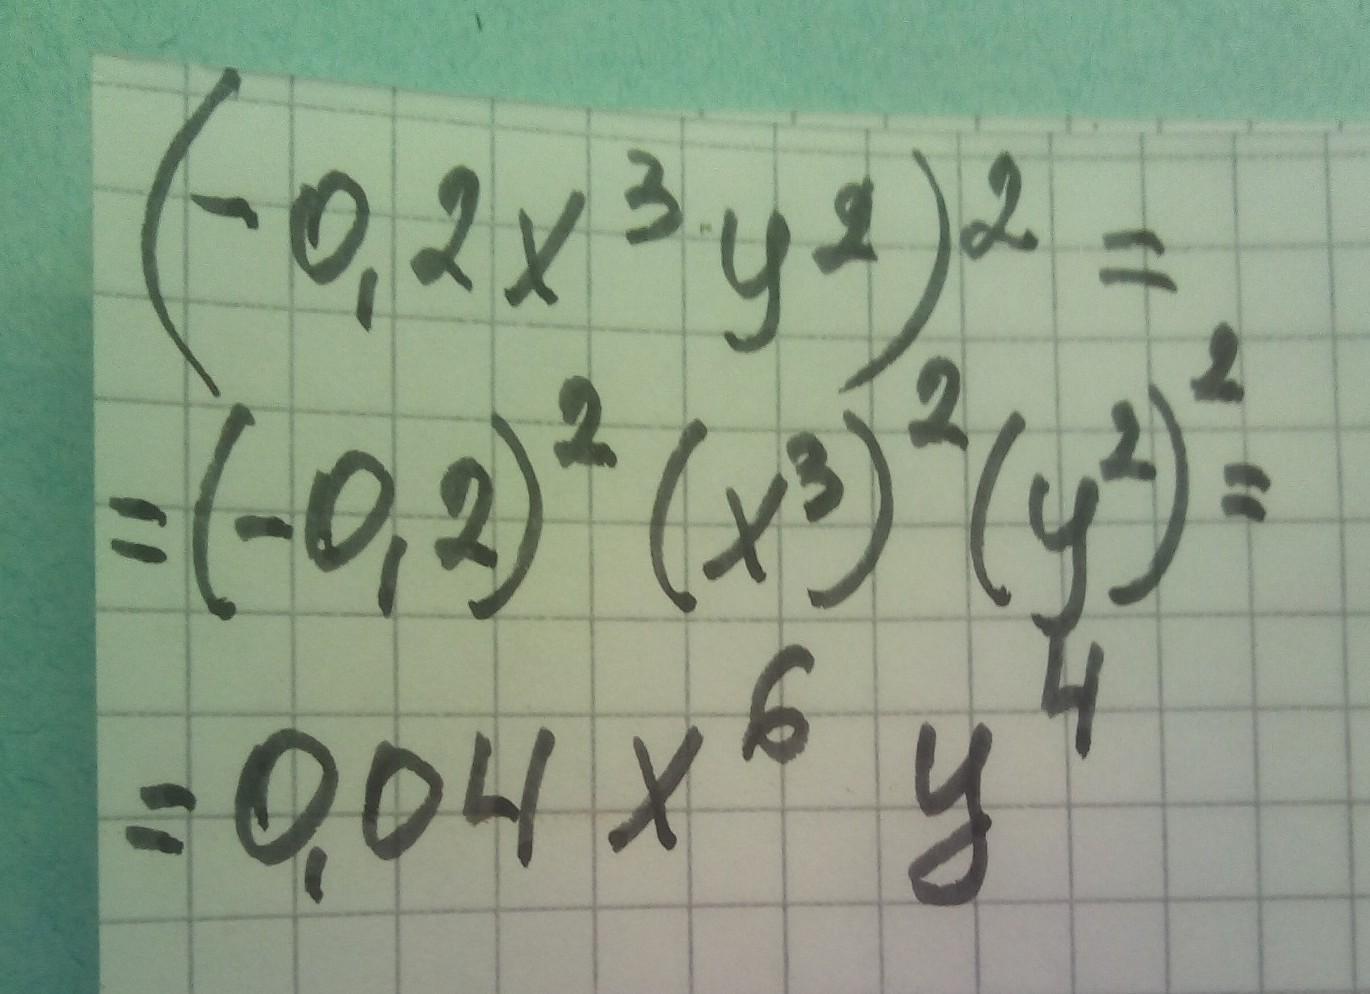 (-0,2x³y²)² =
=(-0,2)²(x³)²(y²)²=
=0,04x⁶y⁴